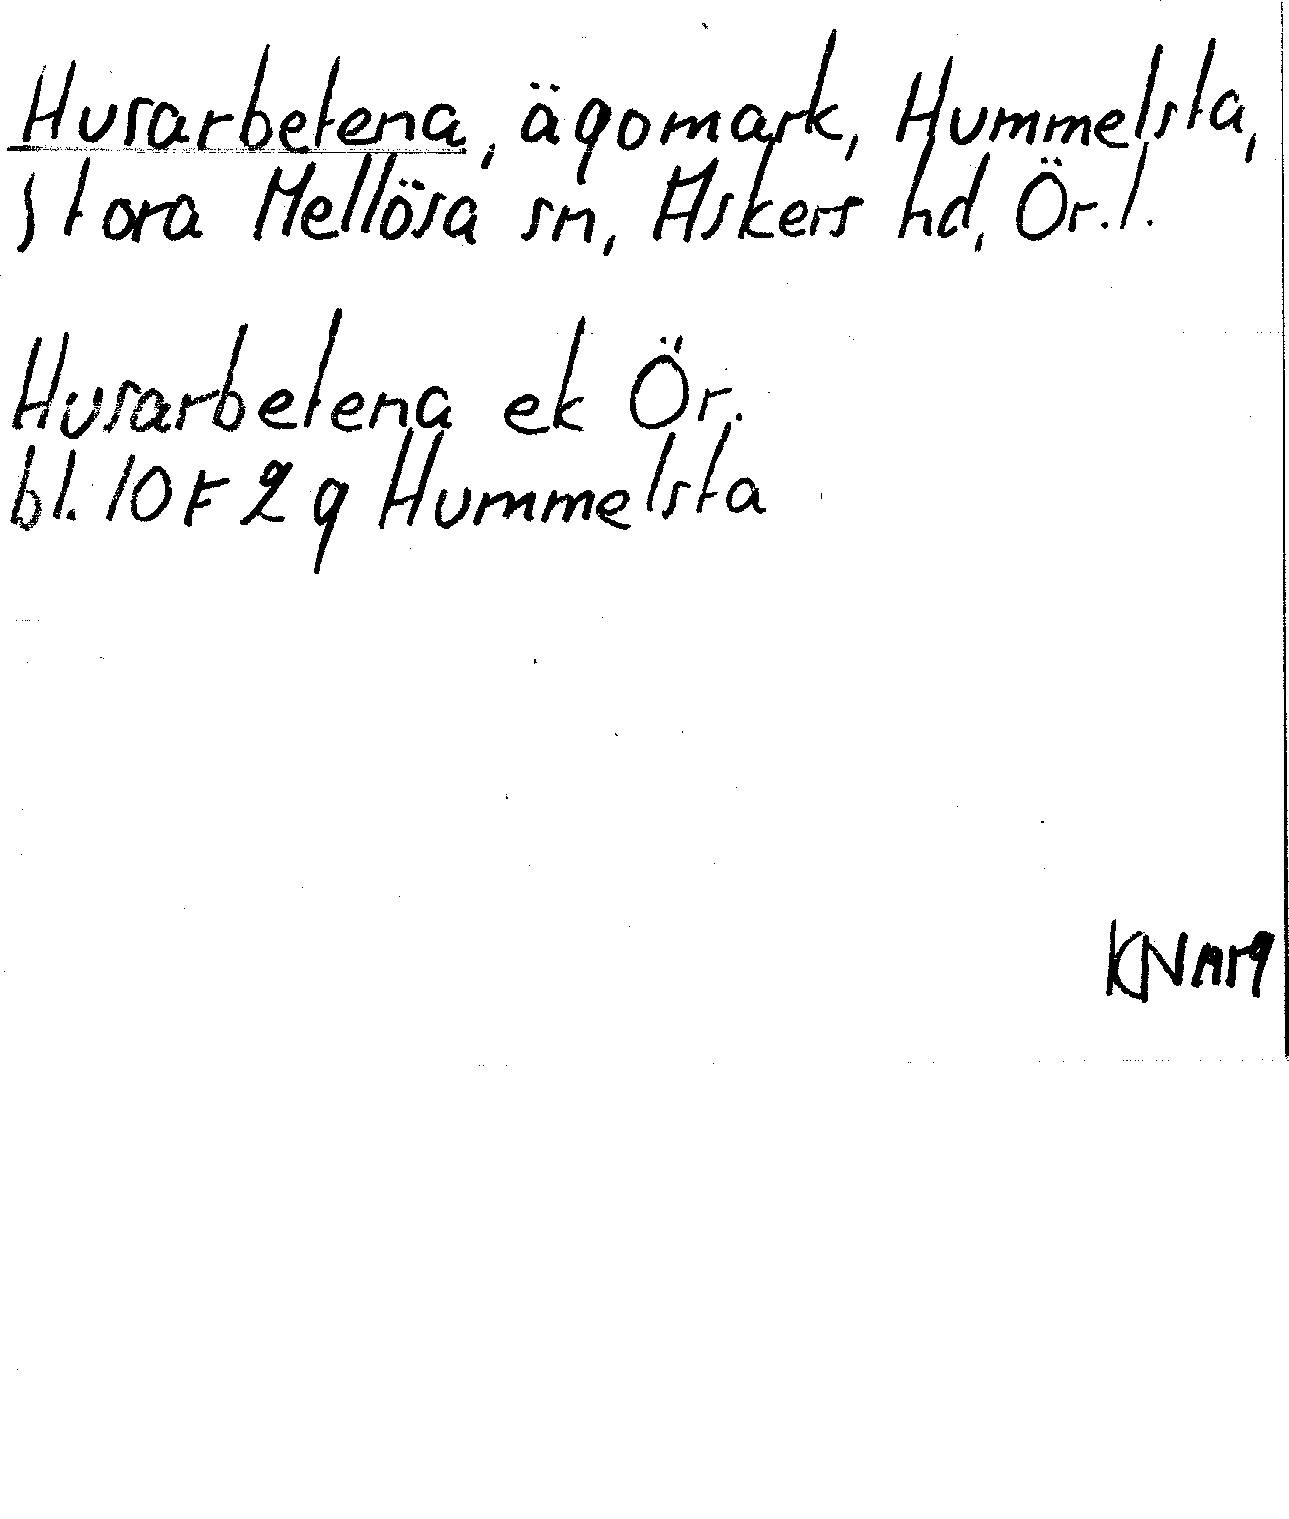 Husarbetena, ägomark, Hummelsta,
Stora Mellösa sn, Askers hd, Ör.l.
Husarbetena ek Ör.
bl. 10 F 2 g Hummelsta